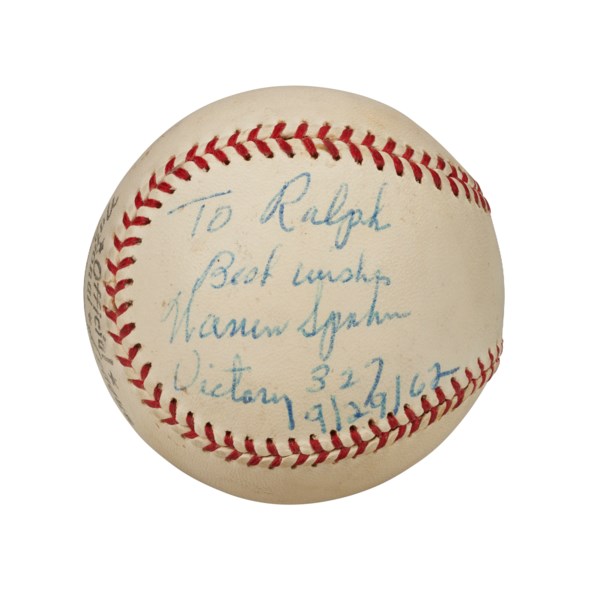 To Ralph
Best wishes
Warren Spahn
Victory 327
9/29/62
Official